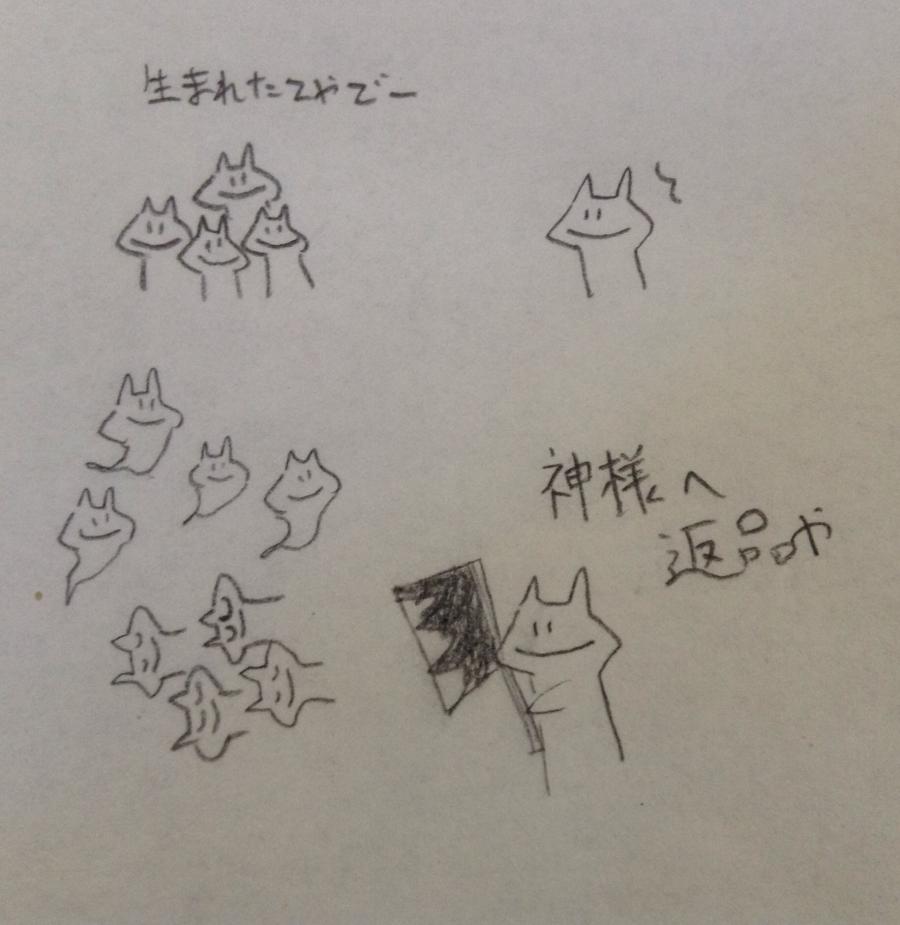 生まれたてやでー
神様へ
返品や